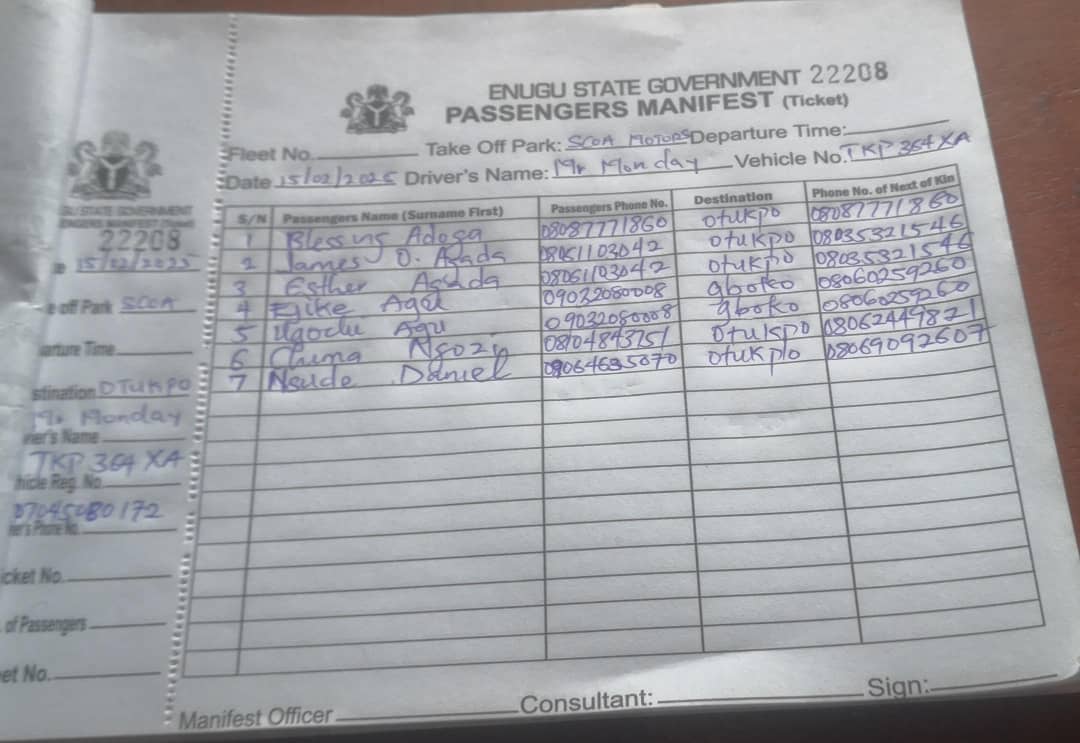 ENUGU STATE GOVERNMENT 22208
PASSENGERS MANIFEST (Ticket)
Fleet No. Take Off Park: SCOA MOTORS Departure Time:
Date 15/02/2025 Driver's Name: Mr Monday Vehicle No. TKP 364 XA
S/N Passengers Name (Surname First) Passengers Phone No. Destination Phone No. of Next of Kin
1 Blessing Adoga 08087771860 Otukpo 08087771860
2 James O. Agada 08051103042 Otukpo 08035321546
3 Esther Agada 08051103042 Otukpo 08035321546
4 Ejike Agu 09032080008 gboko 08060259260
5 Ugochi Agu 09032080008 gboko 08060259260
6 Chima Ngozi 08104843751 Otukpo 08062449871
7 Nsude Daniel 09064635070 Otukpo 08069092607
Manifest Officer Consultant: Sign:
22208
15/02/2025
off Park SCOA
Time
OTUKPO
Mr Monday
Name
TKP 364 XA
Reg. No.
07045080172
Phone No.
No.
of Passengers
No.